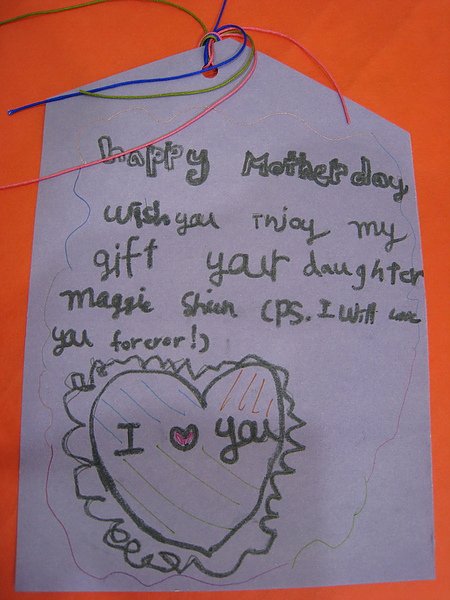 happy Mother day
wish you Injoy my
gift your daughter
Maggie Shien (PS. I will love
you forever!)
I you